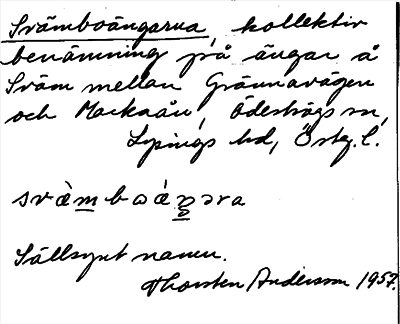 Svämboängarna, kollektiv
benämning på ängar å
Sväm mellan Grännavägen
och Marknån, Ödeshögs sn,
Lysings hd, Östg. l.
Sällsynt namn.
Thorsten Andersson 1957.